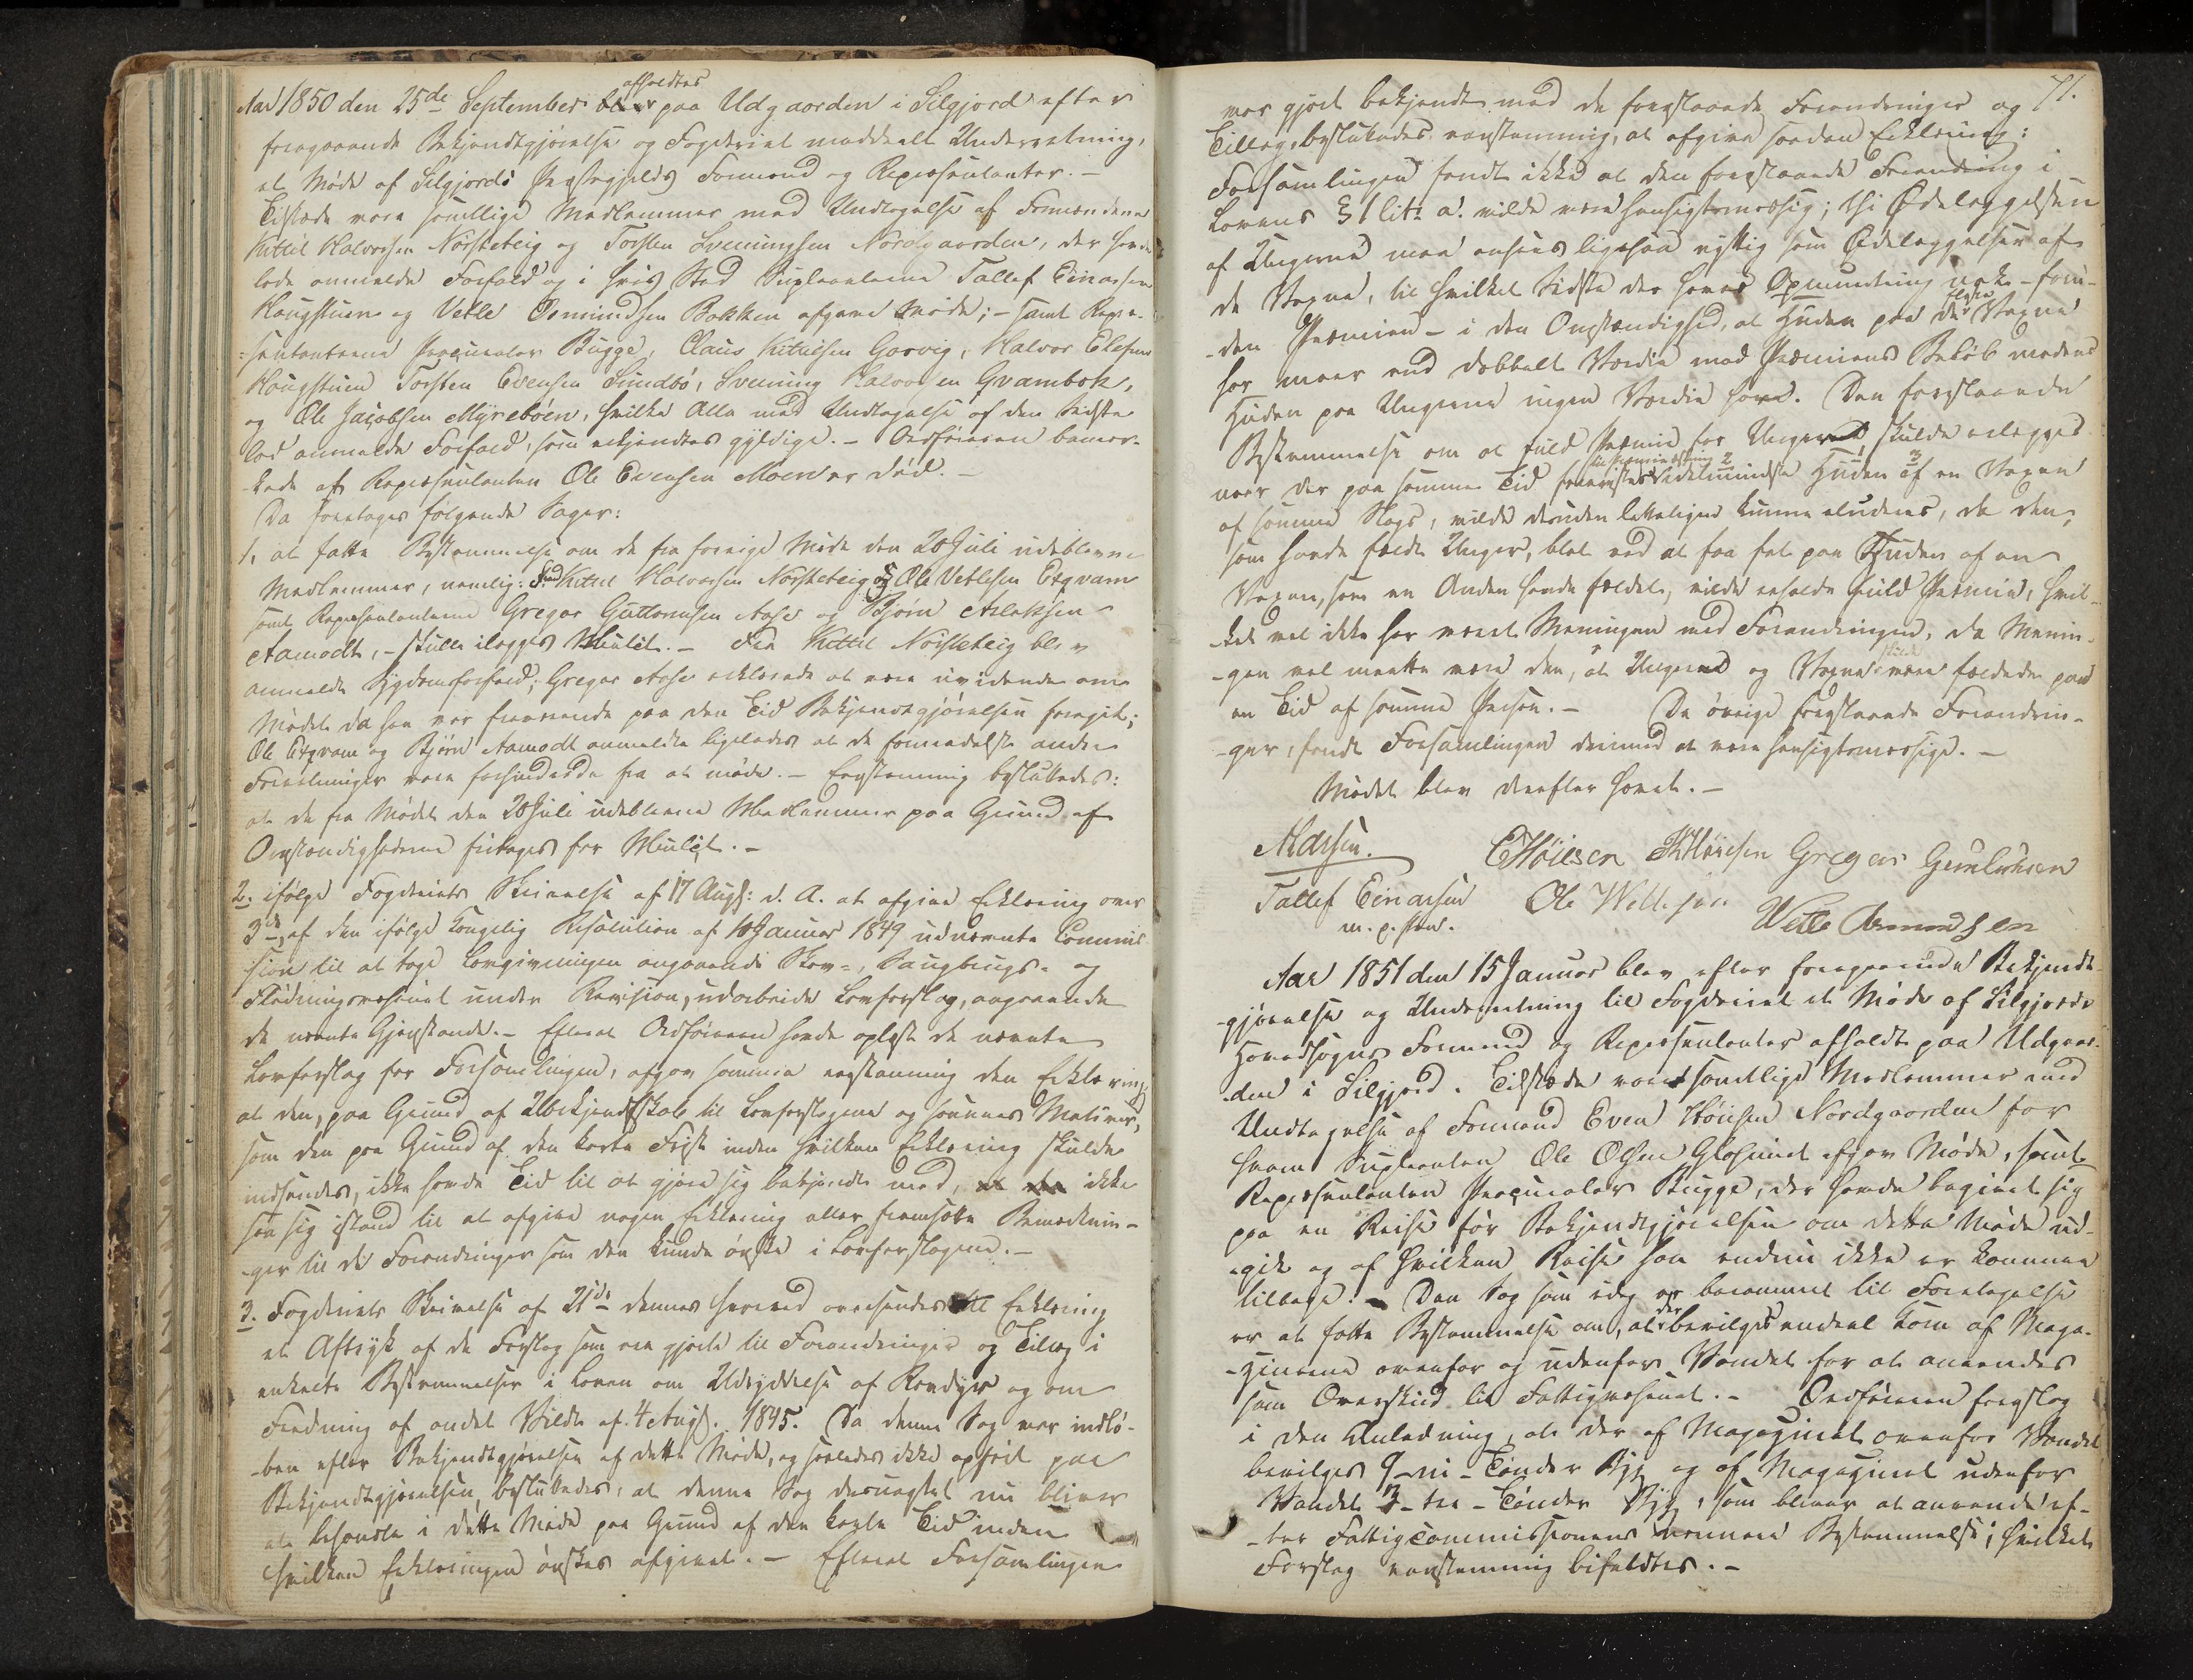 Aar 1850 den 25de September blev afholdtes paa Udgaarden i Silgjord efter
foregaaende Bekjendtgjørelse og Fogderiet meddeelt Underretning,
et Møde af Silgjords Præstegjelds Formænd og Repræsentanter. -
Tilstæde vare samtlige Medlemmer med Undtagelse af Formændene
Kittil Halvorsen Nørsteteig og Torsten Sveningsen Nordgaarden, der havde
lade anmelde Forfald og i hvis Sted Supleanterne Tallef Einarsen
Haugstuen og Vetle Osmundsen Bakken afgave Møde; - samt Repræ-
-sentanterne Procurator Bugge, Claus Kittilsen Garvig, Halvor Olesen
Haugstuen Torsten Evensen Sundbö, Svening Halvorsen Qvambek,
og Ole Jacobsen Myrebøen, hvilke Alle med Undtagelse af den Sidste
lod anmelde Forfald, som erkjendtes gyldige. - Ordføreren bemær-
-kede at Repræsentanten Ole Evensen Moen er død. -
Da foretoges følgende Sager:
1, at fatte Bestemmelse om de fra forrige Møde den 20 Juli udeblevne
Medlemmer, nemlig: Fmd Kittil Halvorsen Norsteteig og Ole Vetlesen Exqvam
samt Repræsentanterne Gregar Guttormsen Aase og Bjørn Aslaksen
Aamodt, - skulle ilægges Mulct. - For Kittil Nørsteteig blev
anmeldt Sygdomsforfald; Gregar Aase erklærede at være uvidende om
Mødet da han var fraværende paa den Tid Bekjendtgjørelsen foregik;
Ole Exqvam og Bjørn Aamodt anmeldte ligeledes at de formedelst andre
Forretninger vare forhindrede fra at møde. - Eenstemmig besluttedes:
at de fra Mødet den 20 Juli udeblevne Medlemmer paa Grund af
Omstændighederne fritages for Mulct. -
2. ifølge Fogderiets Skrivelse af 17 Augs: d. A. at afgive Erklæring over
3de, af den ifølge kongelig Resolution af 10 Januar 1849 udnævnte Commis-
sion til at tage Lovgivningen angaaende Skov-, Saugbrugs- og
Flødningsvæsenet under Revision, udarbeide Lovforslag, angaaende
de nævnte Gjenstande. - Efterat Ordføreren havde oplæst de nævnte
Lovforslag for Forsamlingen, afgav samme eenstemmig den Erklæring,
at den, paa Grund af Ubekjendtskab til Lovforslagene og sammes Motiver,
som den paa Grund af den korte Frist inden hvilken Erklæring skulde
indsendes, ikke havde Tid til at gjøre sig bekjendt med, ikke
saa sig istand til at afgive nogen Erklæring eller fremsætte Bemærknin-
-ger til de Forandringer som den kunde ønske i Lovforslagene. -
3. Fogderiets Skrivelse af 21de dennes hvorved oversendes til Erklæring
et Aftryk af de Forslag som ere gjorte til Forandringer og Tillæg i
enkelte Bestemmelser i Loven om Udryddelse af Rovdyr og om
Fredning af andet Vildt af 4 Augs. 1845. Da denne Sag var indlø-
-ben efter Bekjendtgjørelsen af dette Møde, og saaledes ikke opført paa
Bekjendtgjørelsen, besluttedes, at denne Sag desuagtet nu bliver
at behandle i dette Møde paa Grund af den korte Tid inden
hvilken Erklæringen ønskes afgivet. - Efterat Forsamlingen
71.
var gjort bekjendt med de foreslaaede Forandringer og
Tillæg, besluttedes eenstemmig, at afgive saadan Erklæring:
Forsamlingen fandt ikke at den foreslaaede Forandring i
Lovens § 1 litr. a. vilde være hensigtsmæssig; thi Ødelæggelsen
af Ungerne maa ansees ligesaa vigtig som Ødelæggelsen af
de Voxne, til hvilket Sidste der haves Opmuntring nok - foru-
-den Præmien - i den Omstændighed, at Huden paa de fleste Voxne
har meer end dobbelt Værdie med Præmiens Beløb medens
Huden paa Ungerne ingen Værdie have. Den foreslaaede
Bestemmelse om at fuld Præmie for Ungerne, skulde erlægges
naar der paa samme Tid forevistes idetmindste Huden af en Voxen
af samme Slags, vilde desuden letteligen kunne eluderes, da den,
som havde fældt Unger, blot ved at faa fat paa Huden af en
Voxen, som en Anden havde fældet, vilde erholde fuld Præmie, hvil-
-ket vel ikke har været Meningen med Forandringen, da Menin-
-gen vel maatte være den, at Ungerne og Voxne skulde være fældede paa
en Tid af samme Person. - De øvrige foreslaaede Forandrin-
-ger, fandt Forsamlingen derimod at være hensigtsmæssige. -
Mødet blev derefter hævet. -
Tallef Einarsen
m. p. Pen.
Ole Vetlesen
Aar 1851 den 15 Januar blev efter foregaaende Bekjendt-
-gjørelse og Underretning til Fogderiet et Møde af Silgjords
Hovedsogns Formænd og Repræsentanter afholdt paa Udgaar-
-den i Silgjord. Tilstæde vare samtlige Medlemmer med
Undtagelse af Formand Even Høiesen Nordgaarden for
hvem Supleanten Ole Olsen Glosimot afgav Møde, samt
Repræsentanten Procurator Bugge, der havde begivet sig
paa en Reise før Bekjendtgjørelsen om dette Møde ud-
-gik og af hvilken Reise han endnu ikke er kommen
tilbage. - Den Sag som idag er berammet til Foretagelse
er at fatte Bestemmelse om, at der bevilges endeel Korn af Maga-
-zinerne ovenfor og udenfor Vandet for at anvendes
som Overskud til Fattigvæsenet. - Ordføreren foreslog
i den Anledning, at der af Magazinet ovenfor Vandet
bevilges 9 - ni - Tønder Byg og af Magazinet udenfor
Vandet 3 - tre - Tønder Byg, som bliver at anvende ef-
-ter Fattigcommissionens nærmere Bestemmelse; hvilket
Forslag eenstemmig bifaldtes. -